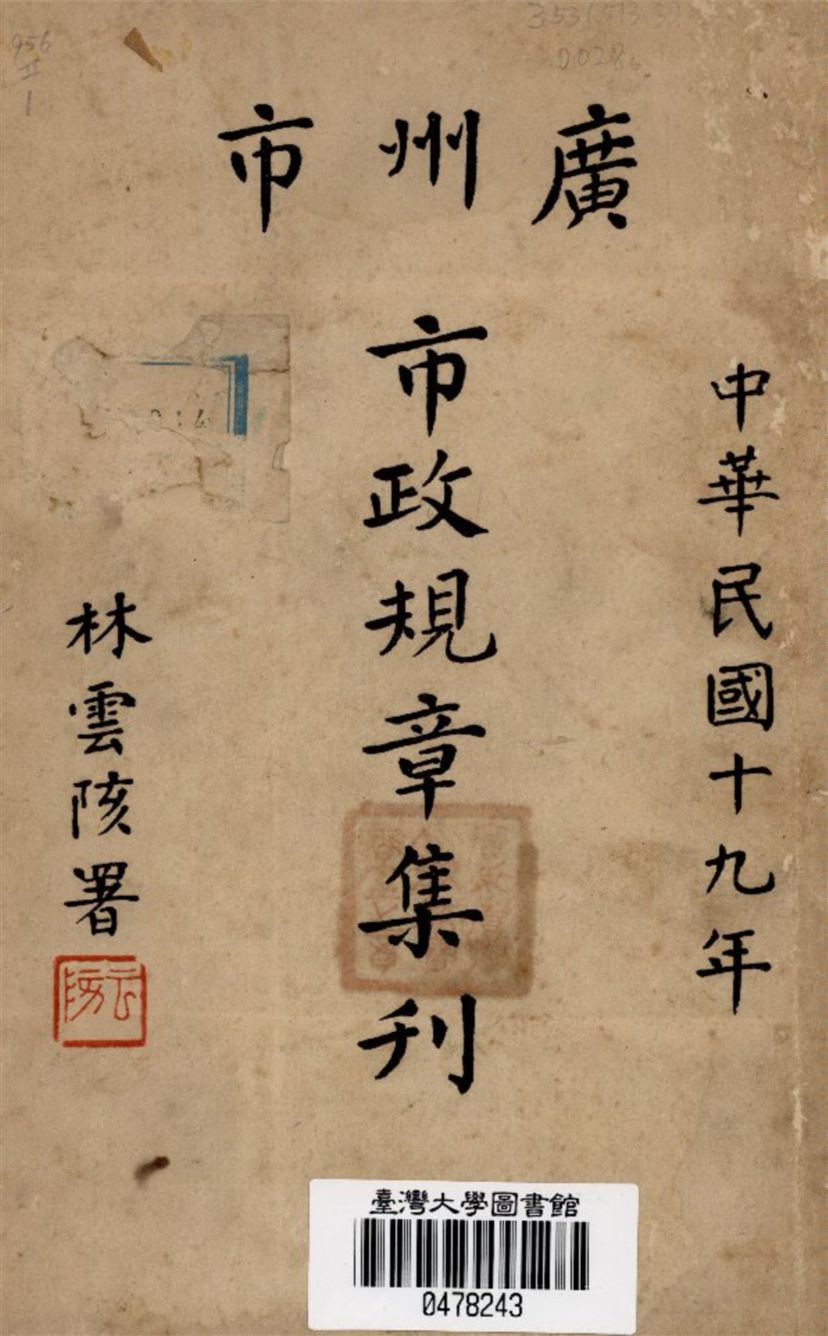 廣州市
中華民國十九年
市政規章集刊
林雲陔署
雲陔
臺灣大學圖書館
0478243
956
II
1